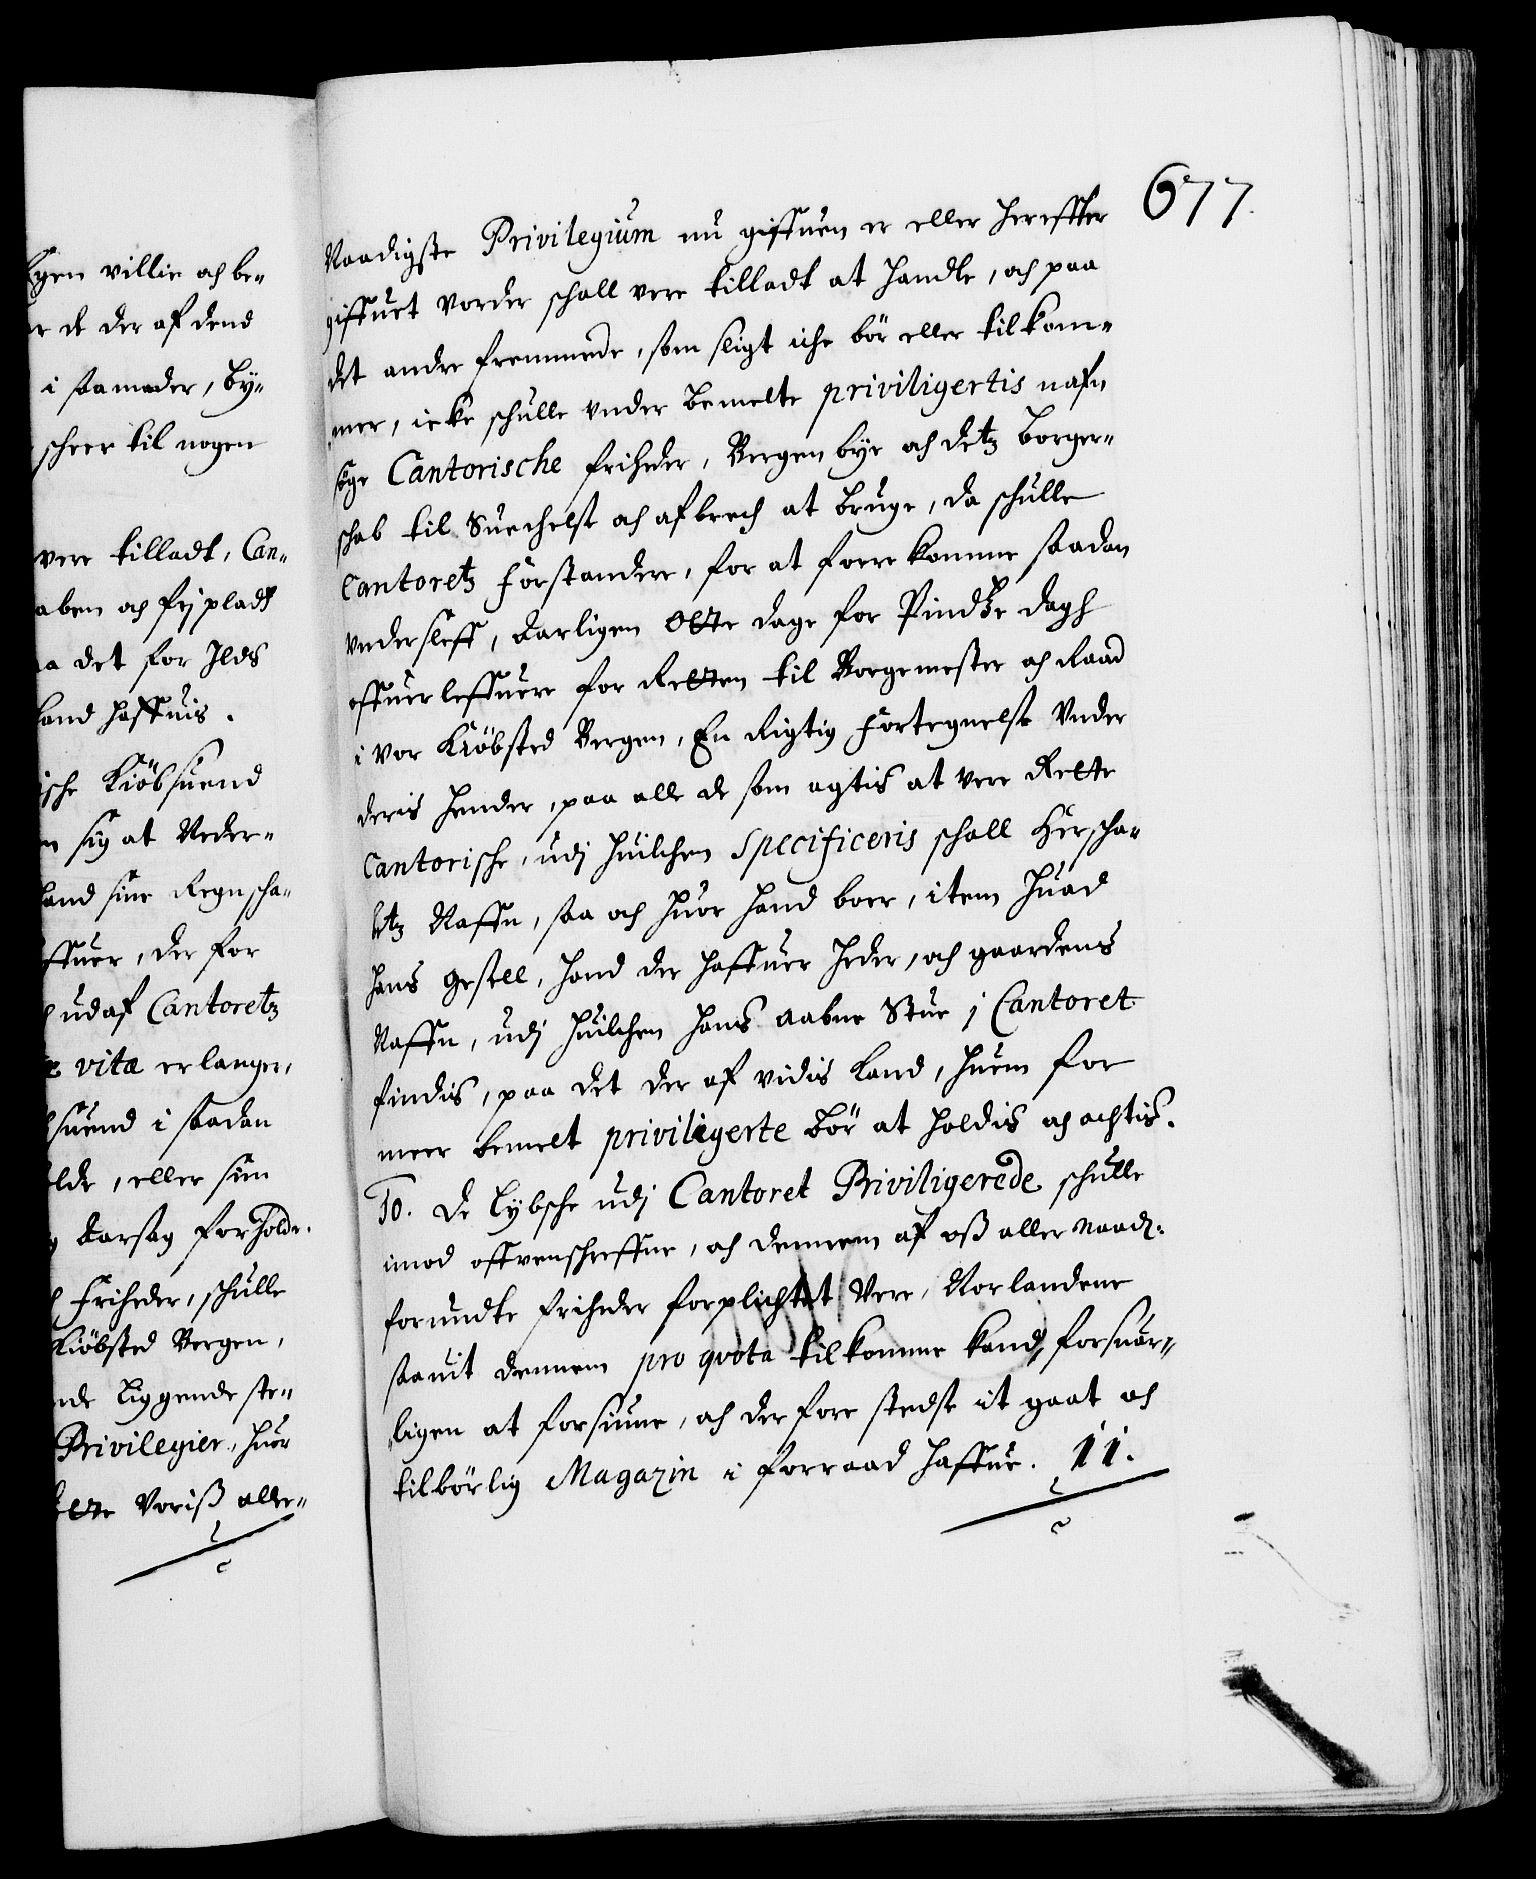 Egen villie och be¬
er de der af dend
i saamader, by¬
scheer til nogen
vere tilladt, Can¬
aben och frj pladtz
a det for Ilds
land haffuis.
ische Kiöbsuend
n sig at Neder¬
land sine Regnscha¬
ffuer, der for
h ud af Cantoretz
vita erlanger,
suend i saadan
olde, eller sin
aarsag forholde.
h Friheder, schulle
Kiöbsted Bergen,
nde liggende ste¬
Privilegier, huor
Voriß aller¬
677.
Naadigste Privilegium nu giffuen er eller herefffter
giffuet vorder schall vere tilladt at handle, och paa
det andre fremmede, som sligt iche bör eller tilkom¬
mer, icke schulle under bemelte priviligertis nafn
söge Cantorische friheder, Bergen bye och detz borger¬
schab til Suechelse och afbrech at bruge, da schulle
Cantoretz Forstandere, for at forrekomme saadan
undersleff, aarligen Otte dage for Pindtze dagh
offuerleffuere for Retten til Borgemester och Raad
i vor Kiöbsted Bergen, En Rigtig Fortegnelse Under
deris hender, paa alle de som agtis at vere Rette
Cantorische, udj huilchen Specificeris schall Herscha¬
betz Naffn, saa och huor hand boer, item huad
hans gesell, hand der haffuer heder, och gaardens
Naffn, udj huilchen hans aabne Stue j Cantoret
findis, paa det der af vidis kand, huem for
meer bemelt priviligerte bör at holdis och achtis.
10. De Lybsche udj Cantoret Priviligerede schulle
imod offvenschreffne, och dennem af oß aller naadi:
forundte friheder forplichtet Vere, Norlandene
saauit dennem pro qvota tilkomme kand, forsuar¬
ligen at forsiune, och der fore stedse it gaat och
tilbörlig Magazin i forraad haffue. 11.